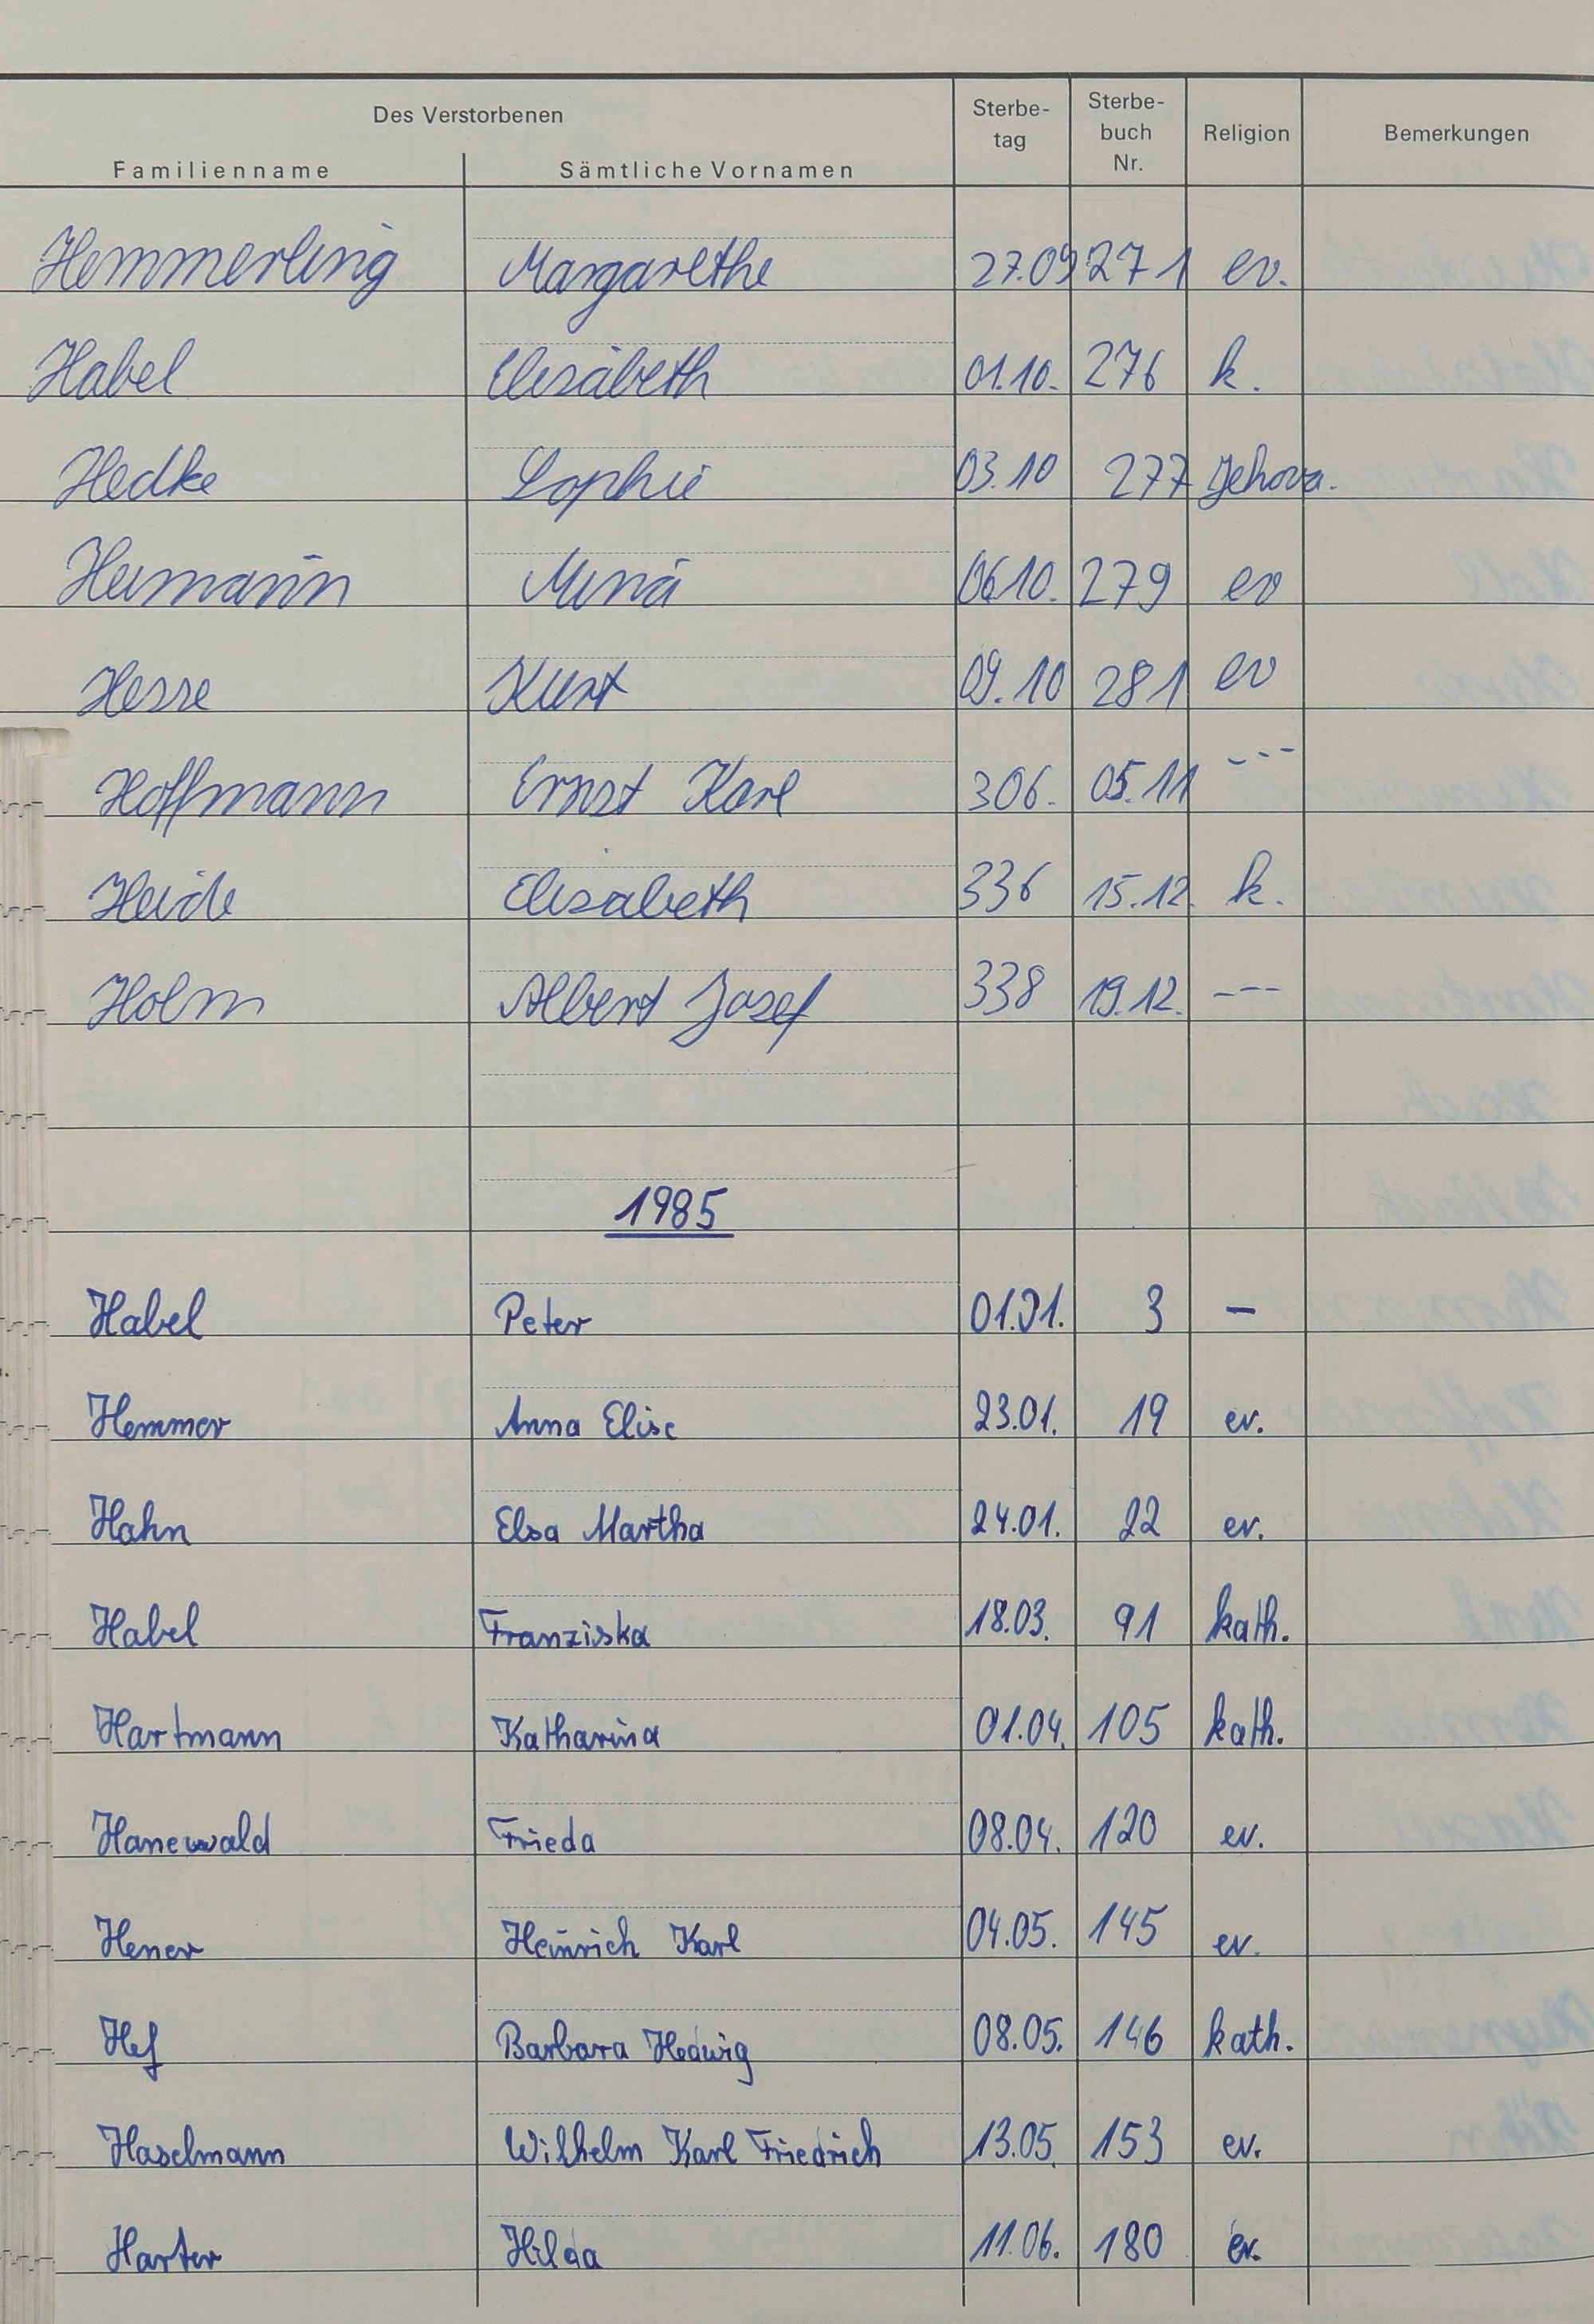 Des Verstorbenen
Familienname Sämtliche Vornamen Sterbe-tag Sterbe-buch Nr. Religion Bemerkungen
Hemmerling Margarethe 27.09 271 ev.
Habel Elisabeth 01.10. 276 k.
Hedke Sophie 03.10 277 Jehova.
Heimann Mina 06.10. 279 ev
Hesse Kurt 09.10 281 ev
Hoffmann Ernst Karl 306. 05.11 ---
Heide Elisabeth 336 15.12. k.
Holm Albert Josef 338 19.12. ---
1985
Habel Peter 01.01. 3 –
Hemmer Anna Elise 23.01. 19 ev.
Hahn Elsa Martha 24.01. 22 ev.
Habel Franziska 18.03. 91 kath.
Hartmann Katharina 01.04. 105 kath.
Hanewald Frieda 08.04. 120 ev.
Hener Heinrich Karl 04.05. 145 ev.
Hef Barbara Hedwig 08.05. 146 kath.
Haselmann Wilhelm Karl Friedrich 13.05. 153 ev.
Harter Hilda 11.06. 180 ev.